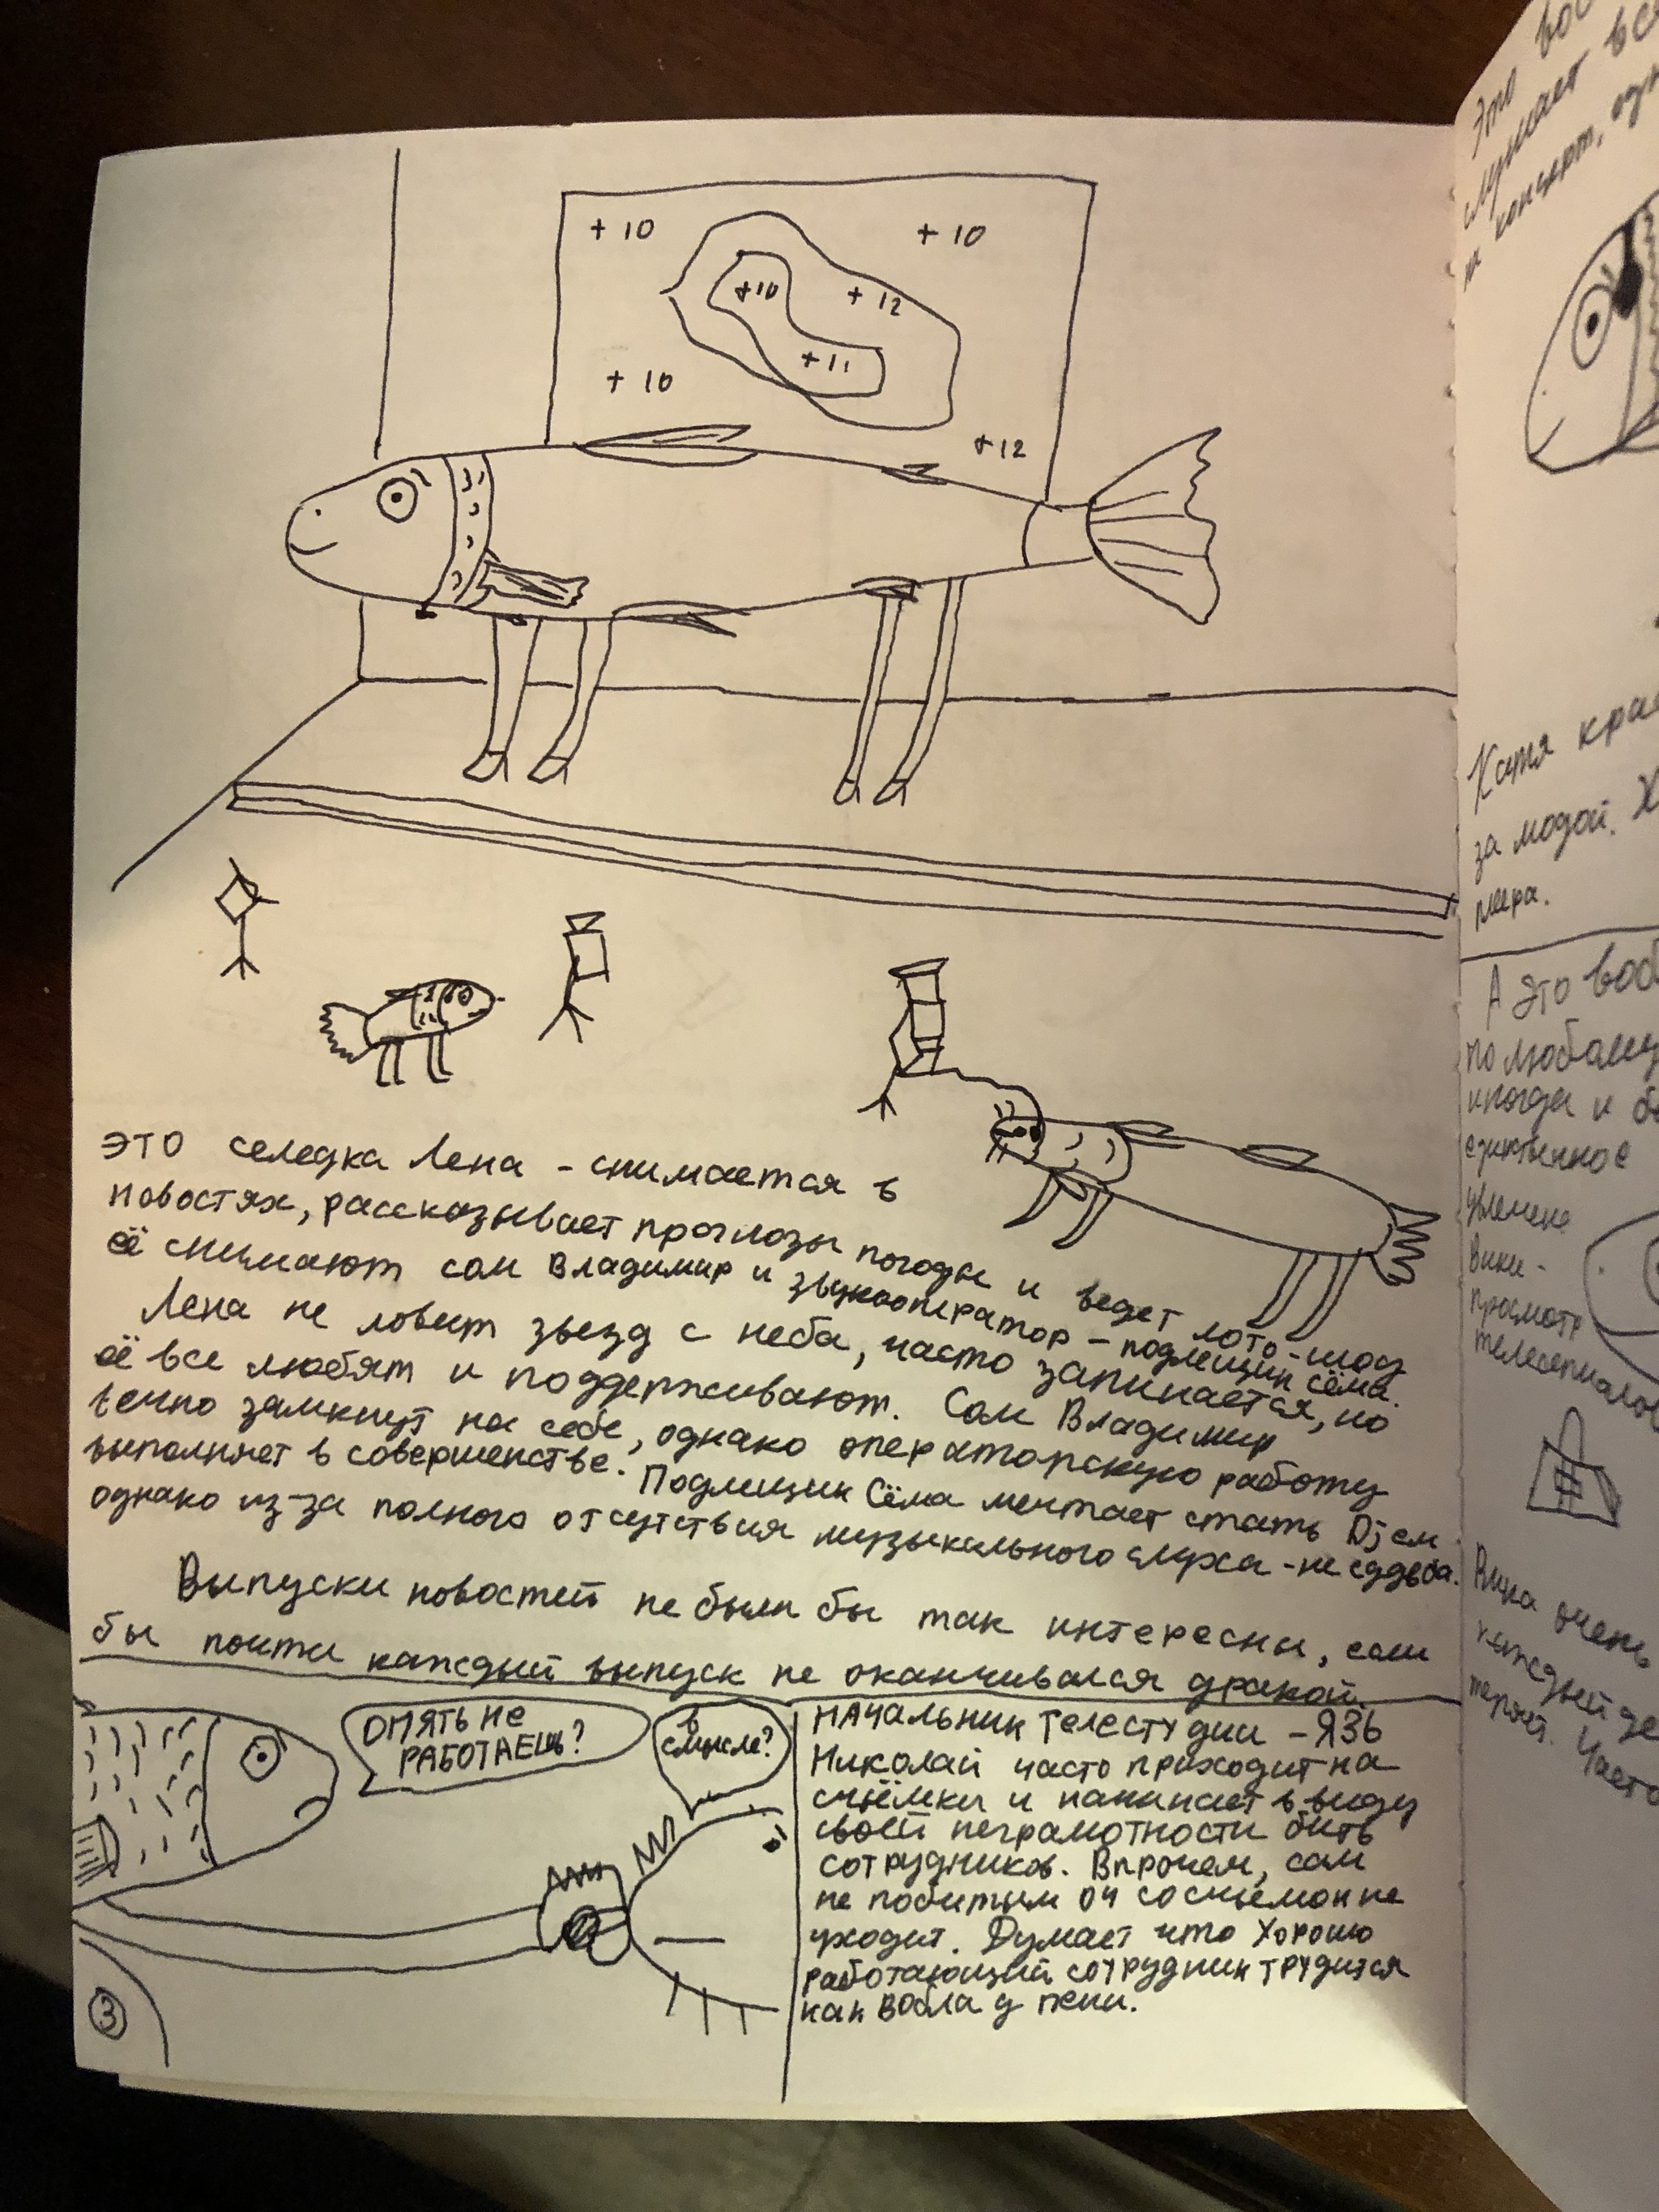 + 10
+ 10
+10
+ 12
+ 11
+ 10
+12
ЭТО селедка Лена - снимается в
новостях, рассказывает прогнозы погоды и ведет лото-шоу
её снимают сом Владимир и звукооператор - подлещик Сёма.
Лена не ловит звезд с неба, часто запинается, но
её все любят и поддерживают. Сом Владимир
вечно замкнут на себе, однако операторскую работу
выполняет в совершенстве. Подлещик Сёма мечтает стать Djем
однако из-за полного отсутствия музыкального слуха - не судьба.
Выпуски новостей не были бы так интересны, если
бы почти каждый выпуск не оканчивался дракой.
ОПЯТЬ НЕ
РАБОТАЕШЬ?
в
смысле?
НАЧАЛЬНИК ТЕЛЕСТУДИИ - ЯЗЬ
Николай часто приходит на
съёмки и начинает в виду
своей неграмотности бить
сотрудников. Впрочем, сам
не побитым он со съемок не
уходит. Думает что хорошо
работающий сотрудник трудится
как вобла у печи.
3
Это
слушает вс
на концерт, одн
Катя кра
за модой. Х
мира.
А это воб
по любому
иногда и б
единтичное
Вики-
просмотр
телесериалов
Вика очень
каждый де
теряет. Часто